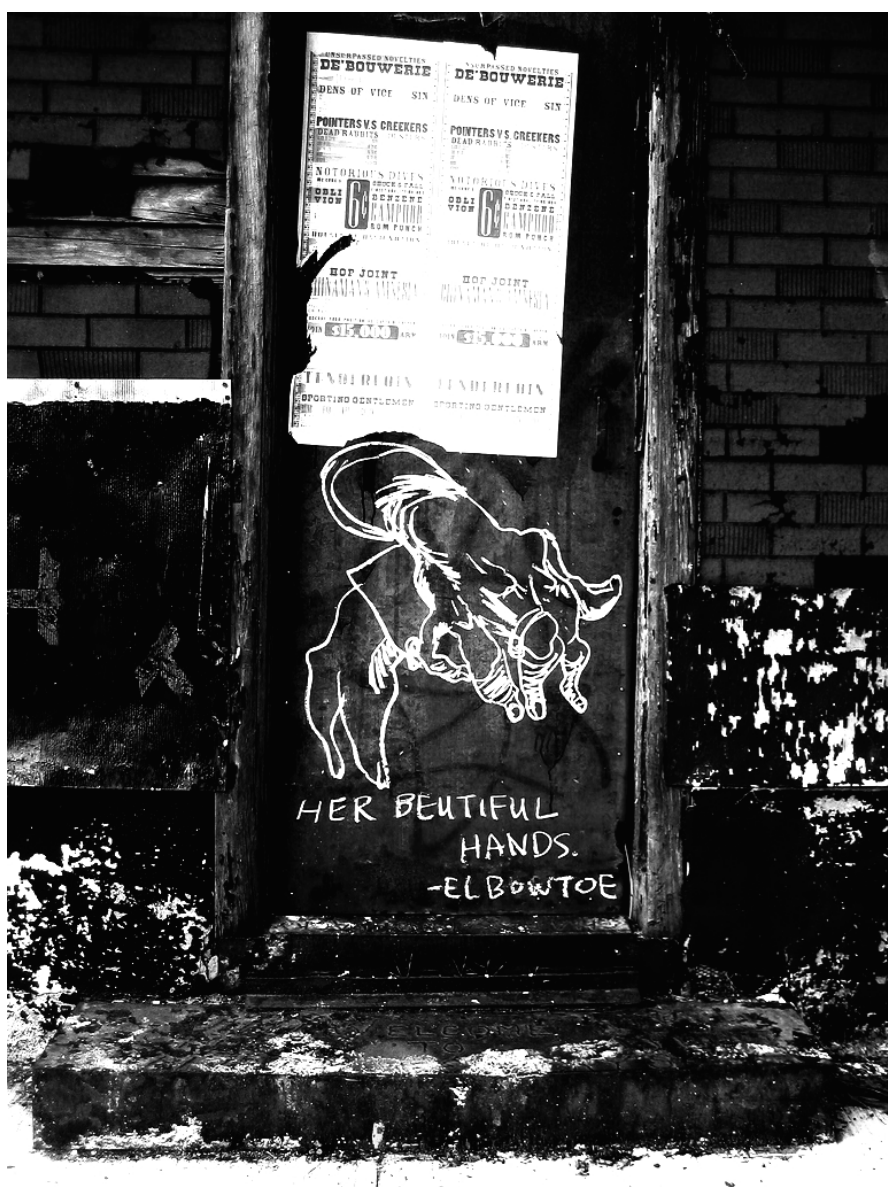 UNSURPASSED NOVELTIES
DE'BOUWERIE
DENS OF VICE SIN
POINTERS V.S. GREEKERS
DEAD RABBITS
NOTORIOUS DIVES
OBLI
VION
6¢
BENZENE
CAMPHOR
RUM PUNCH
HOP JOINT
$15,000
TENDERLOIN
SPORTING GENTLEMEN
UNSURPASSED NOVELTIES
DE'BOUWERIE
DENS OF VICE SIN
POINTERS V.S. GREEKERS
DEAD RABBITS
NOTORIOUS DIVES
OBLI
VION
6¢
BENZENE
CAMPHOR
RUM PUNCH
HOP JOINT
$15,000
TENDERLOIN
SPORTING GENTLEMEN
HER BEUTIFUL
HANDS.
-ELBOWTOE
WELCOME
TO